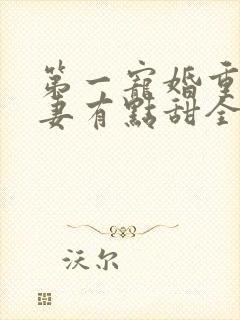 第一寵婚重
妻有點甜全
沃尔